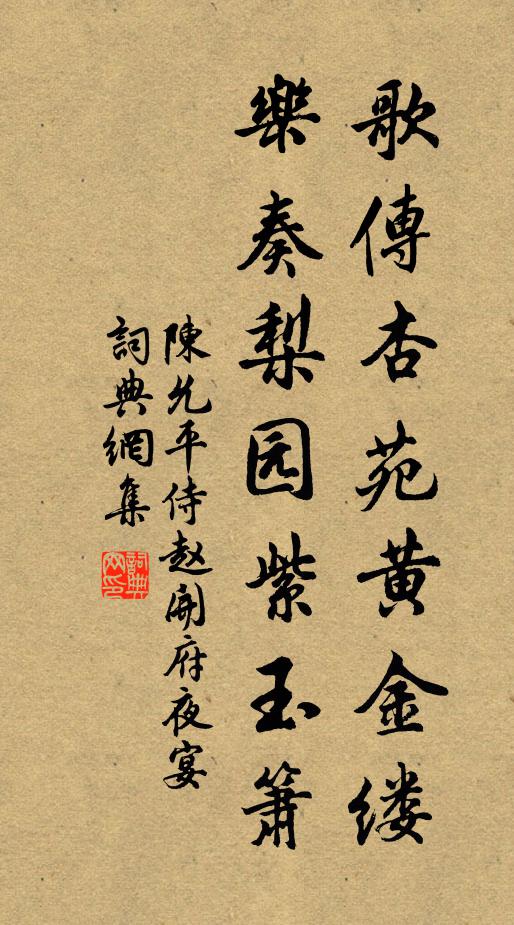 歌傳杏苑黄金缕
樂奏梨园紫玉簫
陳允平侍赵開府夜宴
詞典網集
詞典网印